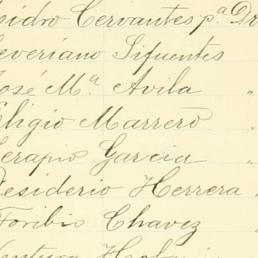 sidro Cervantes p.ª Dr
Severiano Sifuentes
José M.ª Avila "
Eligio Marrero "
Serapio Garcia "
Desiderio Herrera "
Toribio Chavez "
Ventura